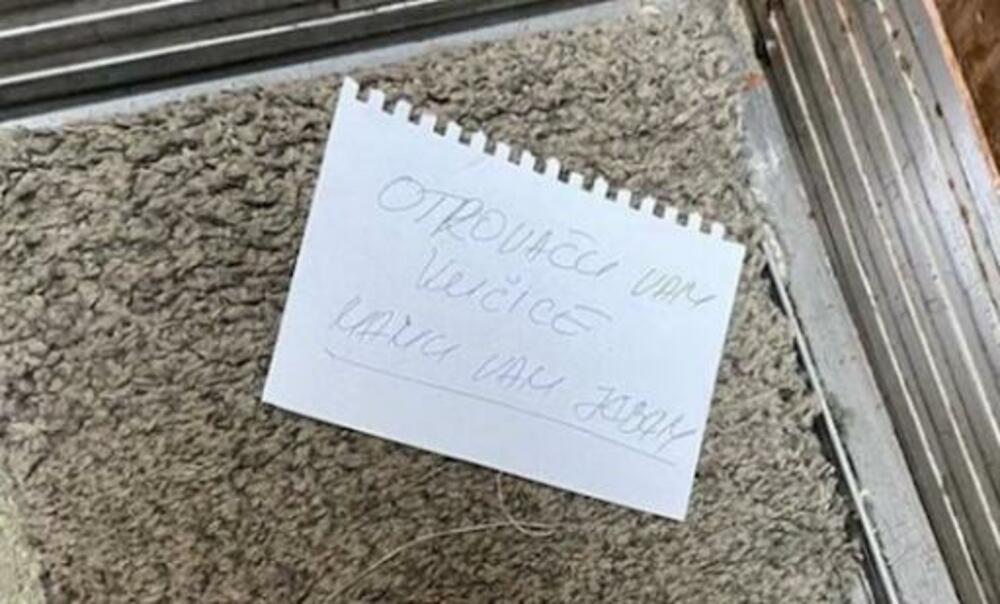 OTROVAČU VAM
KUČICE
MAJKU VAM JEBAM